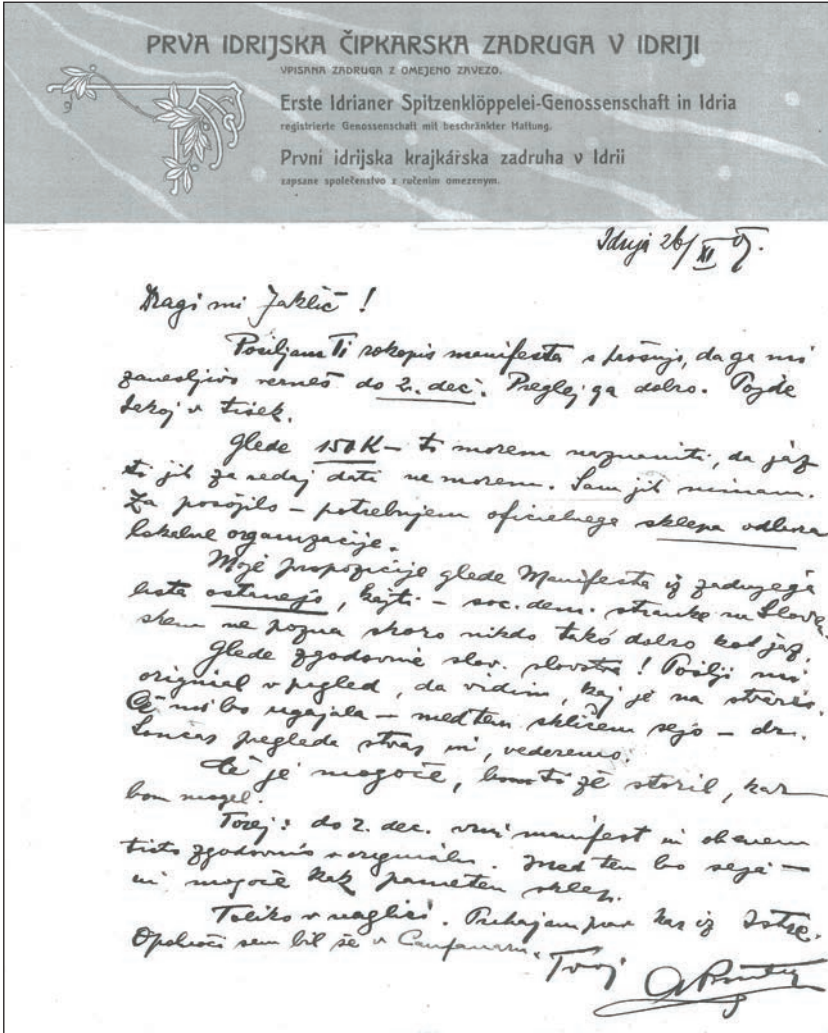 PRVA IDRIJSKA ČIPKARSKA ZADRUGA V IDRIJI
VPISANA ZADRUGA Z OMEJENO ZAVEZO.
Erste Idrianer Spitzenklöppelei-Genossenschaft in Idria
registrierte Genossenschaft mit beschränkter Haftung.
První idrijska krajkářska zadruha v Idrii
zapsane společenstvo z ručenim omezenym.
Idrija 26/XI 07.
Dragi mi Jaklič!
Pošiljam Ti rokopis manifesta s prošnjo, da ga mi
zanesljivo verneš do 2. dec. Preglej ga dobro. Pojde
tekoj v tisek.
Glede 150 K – ti morem naznaniti, da jaz
ti jih za sedaj dati ne morem. Sam jih nimam.
Za posojilo – potrebujem oficielnega sklepa odbora
lokalne organizacije.
Moje propozicije glede Manifesta iz zadnjega
lista ostanejo, kajti – soc. dem. stranke na Sloven-
skem ne pozna skoro nikdo tako dobro kot jaz.
Glede zgodovine slov. slovstva! Pošlji mi
original v pregled, da vidim, kaj je na stvari.
Če mi bo ugajala – med tem skličem sejo – dr.
Lončar pregleda stvar in, vederemo.
Če je mogoče, bom ti že storil, kar
bom mogel.
Torej: do 2. dec. vrni manifest in obenem
tisto zgodovino v originalu. Med tem bo seja –
in mogoče kak pameten sklep.
Toliko v naglici. Prihajam prav kar iz Istre.
Opolnoči sem bil še v Canfanaru.
Tvoj